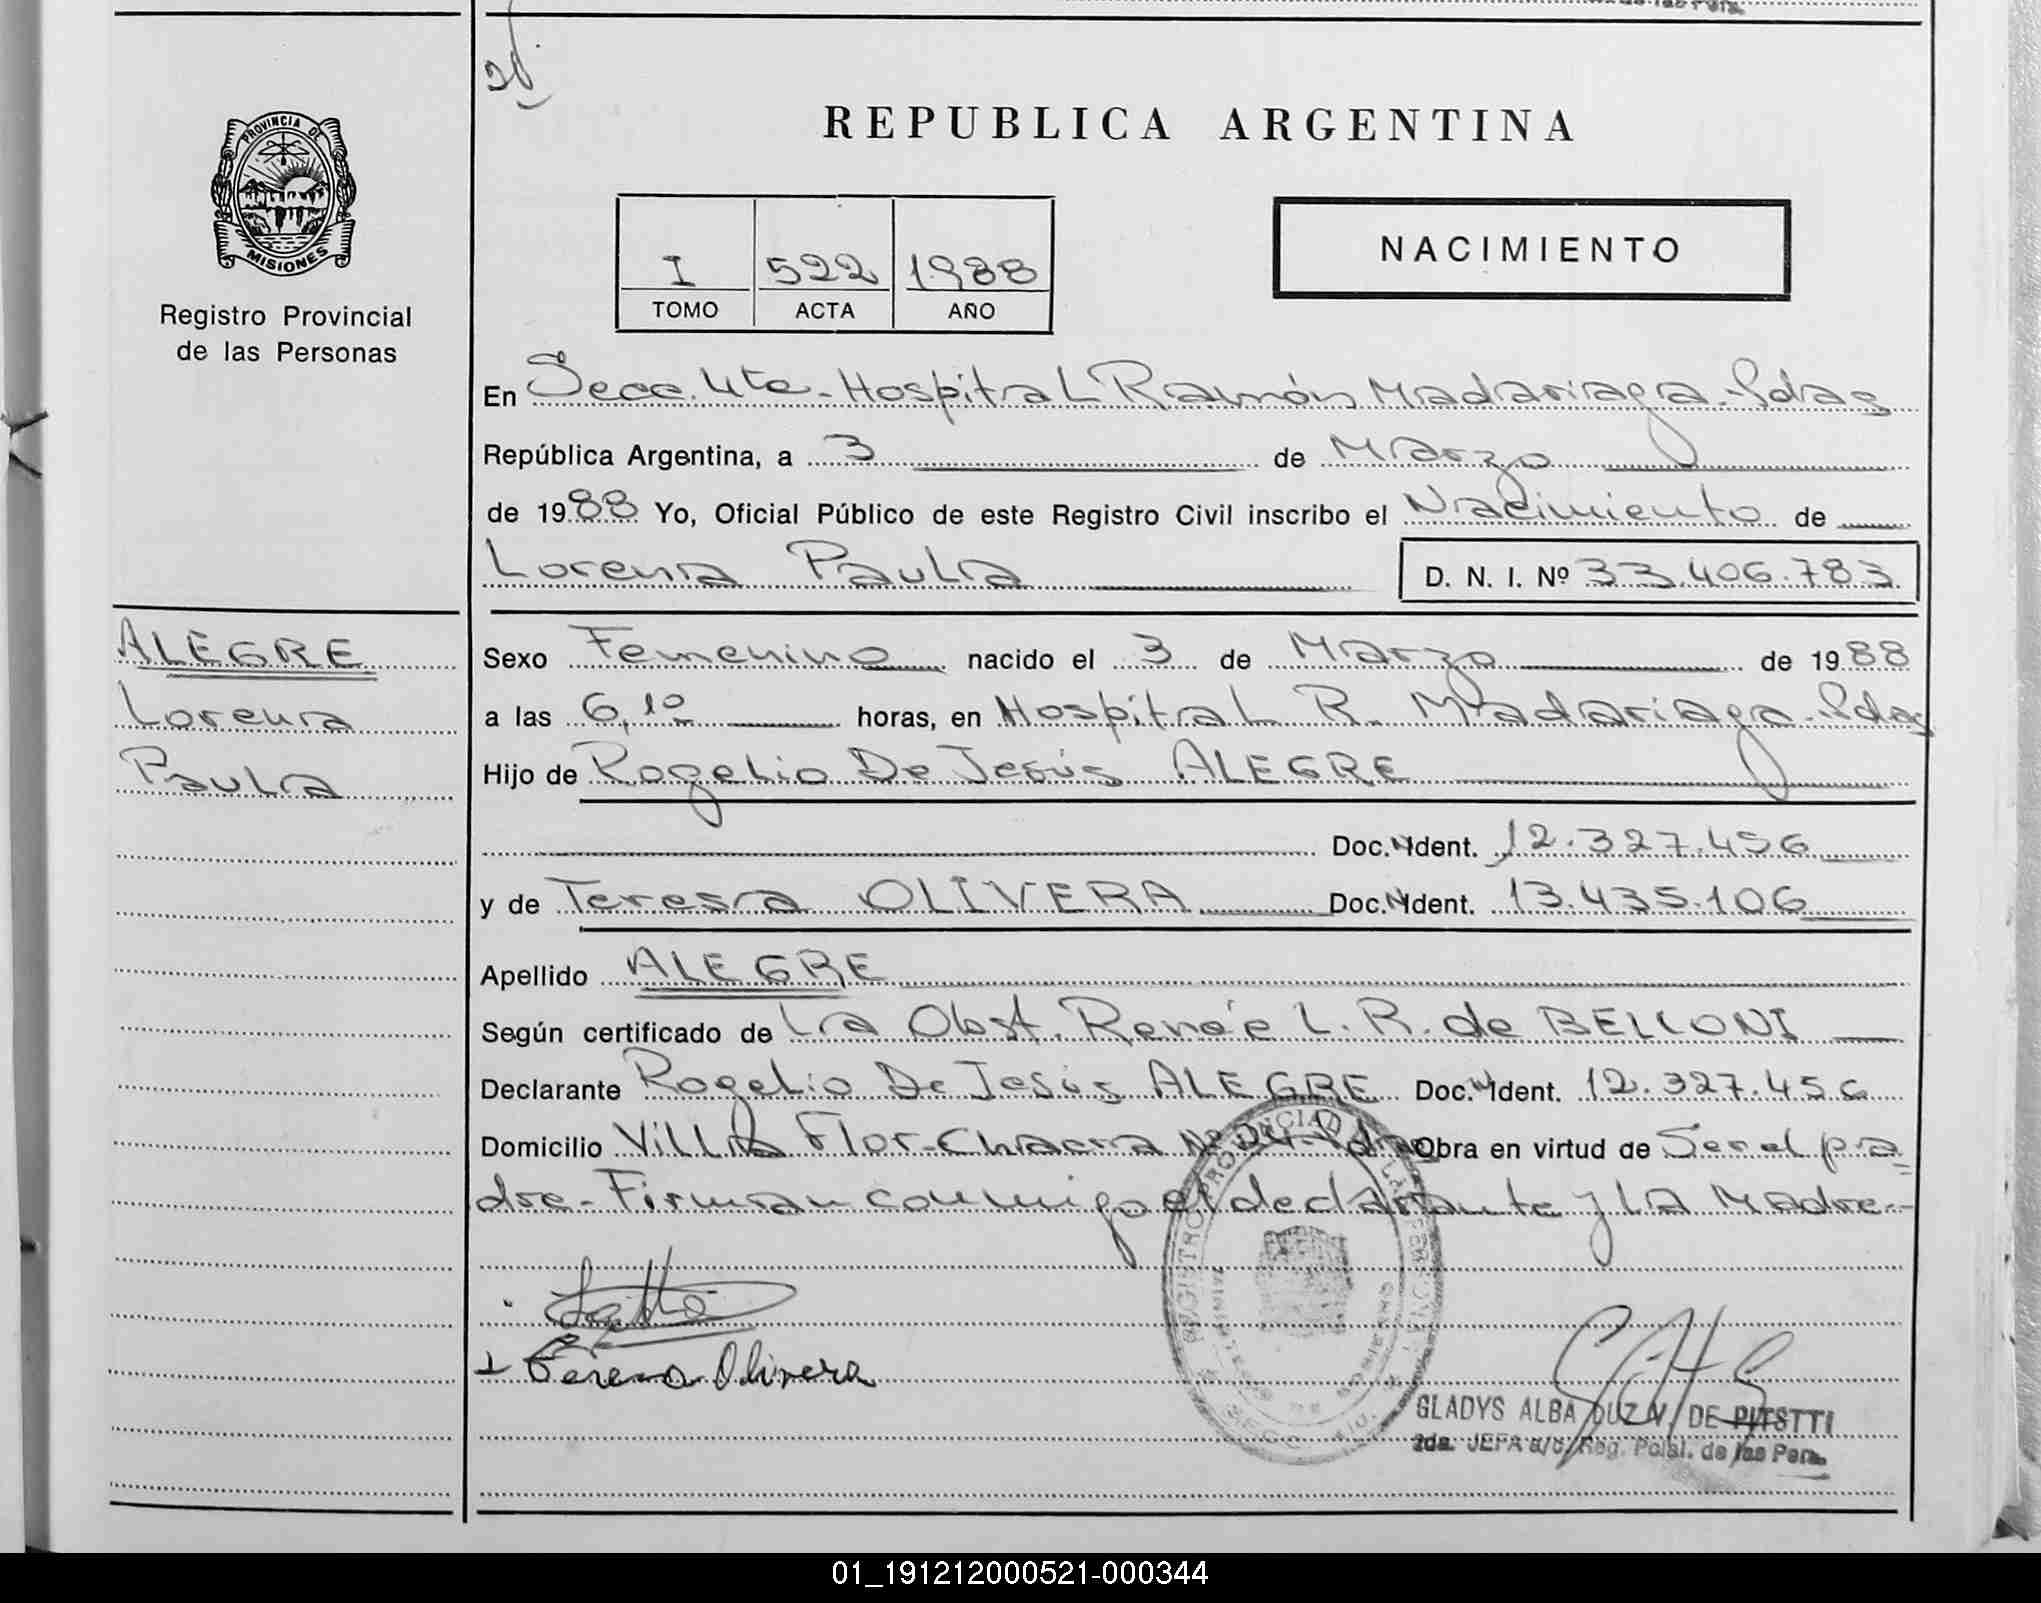 REPUBLICA ARGENTINA
PROVINCIA DE
MISIONES
Registro Provincial
de las Personas
NACIMIENTO
I 522 1988
TOMO ACTA AÑO
En Secc. 4ta - Hospital Ramón Madariaga - Pdas
República Argentina, a 3 de Marzo
de 1988 Yo, Oficial Público de este Registro Civil inscribo el Nacimiento de
Lorena Paula D. N. I. Nº 33.406.783
ALEGRE
Lorena
Paula
Sexo Femenino nacido el 3 de Marzo de 1988
a las 6,10 horas, en Hospital R. Madariaga - Pdas
Hijo de Rogelio De Jesús ALEGRE
Doc. Ident. 12.327.456
y de Teresa OLIVERA Doc. Ident. 13.435.106
Apellido ALEGRE
Según certificado de La Obst. Renée L. R. de BELLONI
Declarante Rogelio De Jesús ALEGRE Doc. Ident. 12.327.456
Domicilio Villa Flor - Chacra Nº Obra en virtud de Ser el pa=
dre - Firman conmigo el declarante y La Madre.-
Teresa Olivera
REGISTRO PROVINCIAL DE LAS PERSONAS
GLADYS ALBA DE
2da. JEFA a/c. Reg. Pcial. de las Pers.
01_191212000521-000344